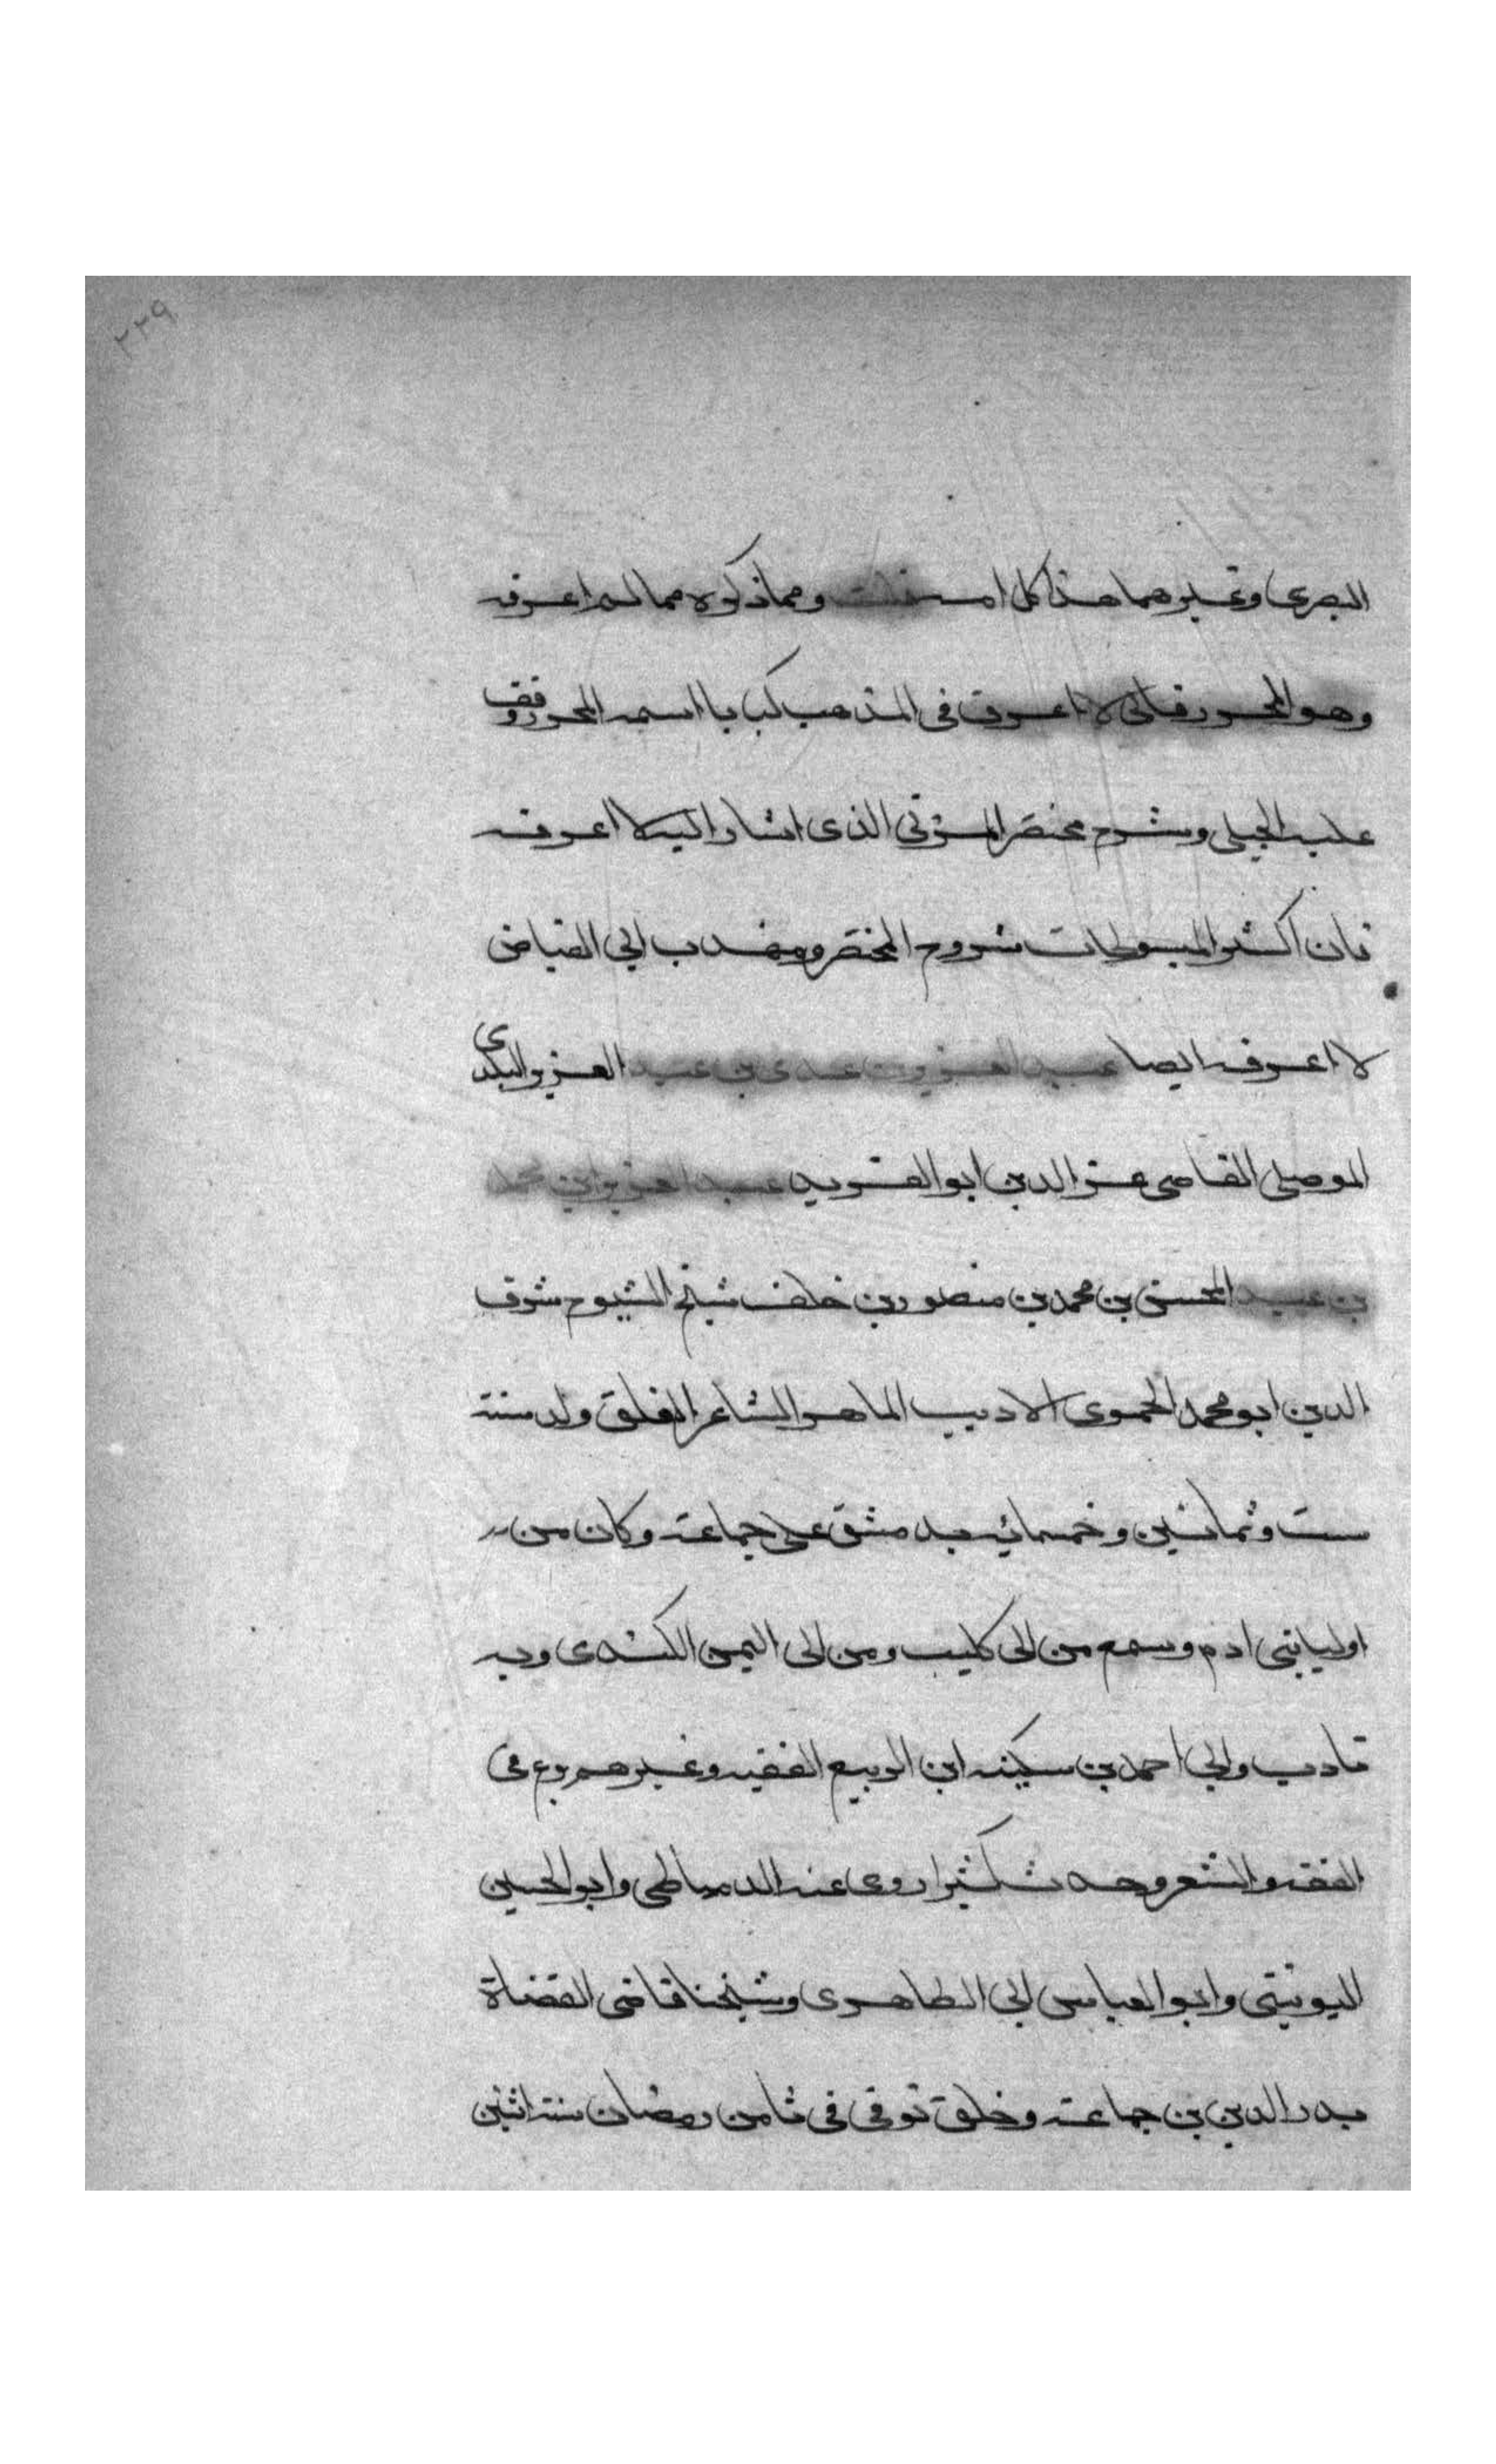 ٢٢٩
البصري وغيرهما هذا كل ومما ذكره مما لم اعرفه
وهو المحرر فاني لا اعرف في المذهب كتابا اسمه المحرر وقف
عليه الجيلي وشرح مختصر المزني الذي اشار اليه لا اعرفه
فان اكثر المبسوطات شروح المختصر ومهذب ابي الفياض
لا اعرفه ايضا عبد العزيز بن عدي بن عبد العزيز البلدي
الموصلي القاضي عز الدين ابو العز عبد العزيز بن محمد
بن عبد المحسن بن محمد بن منصور بن خلف شيخ الشيوخ شرف
الدين ابو محمد الحموي الاديب الماهر الشاعر المفلق ولد سنة
ست وثمانين وخمسمائه بدمشق على جماعة وكان من
بني ادم وسمع من ابي كليب ومن ابي اليمن الكندي وبه
تادب وابي احمد بن سكينه ابن الربيع الفقيه وغيرهم برع في
الفقه والشعر وحدث كثيرا روى عنه الدمياطي وابو الحسين
اليونيني وابو العباس ابن الظاهري وشيخنا قاضي القضاة
بدر الدين بن جماعة وخلق توفي في ثامن رمضان سنة اثنين